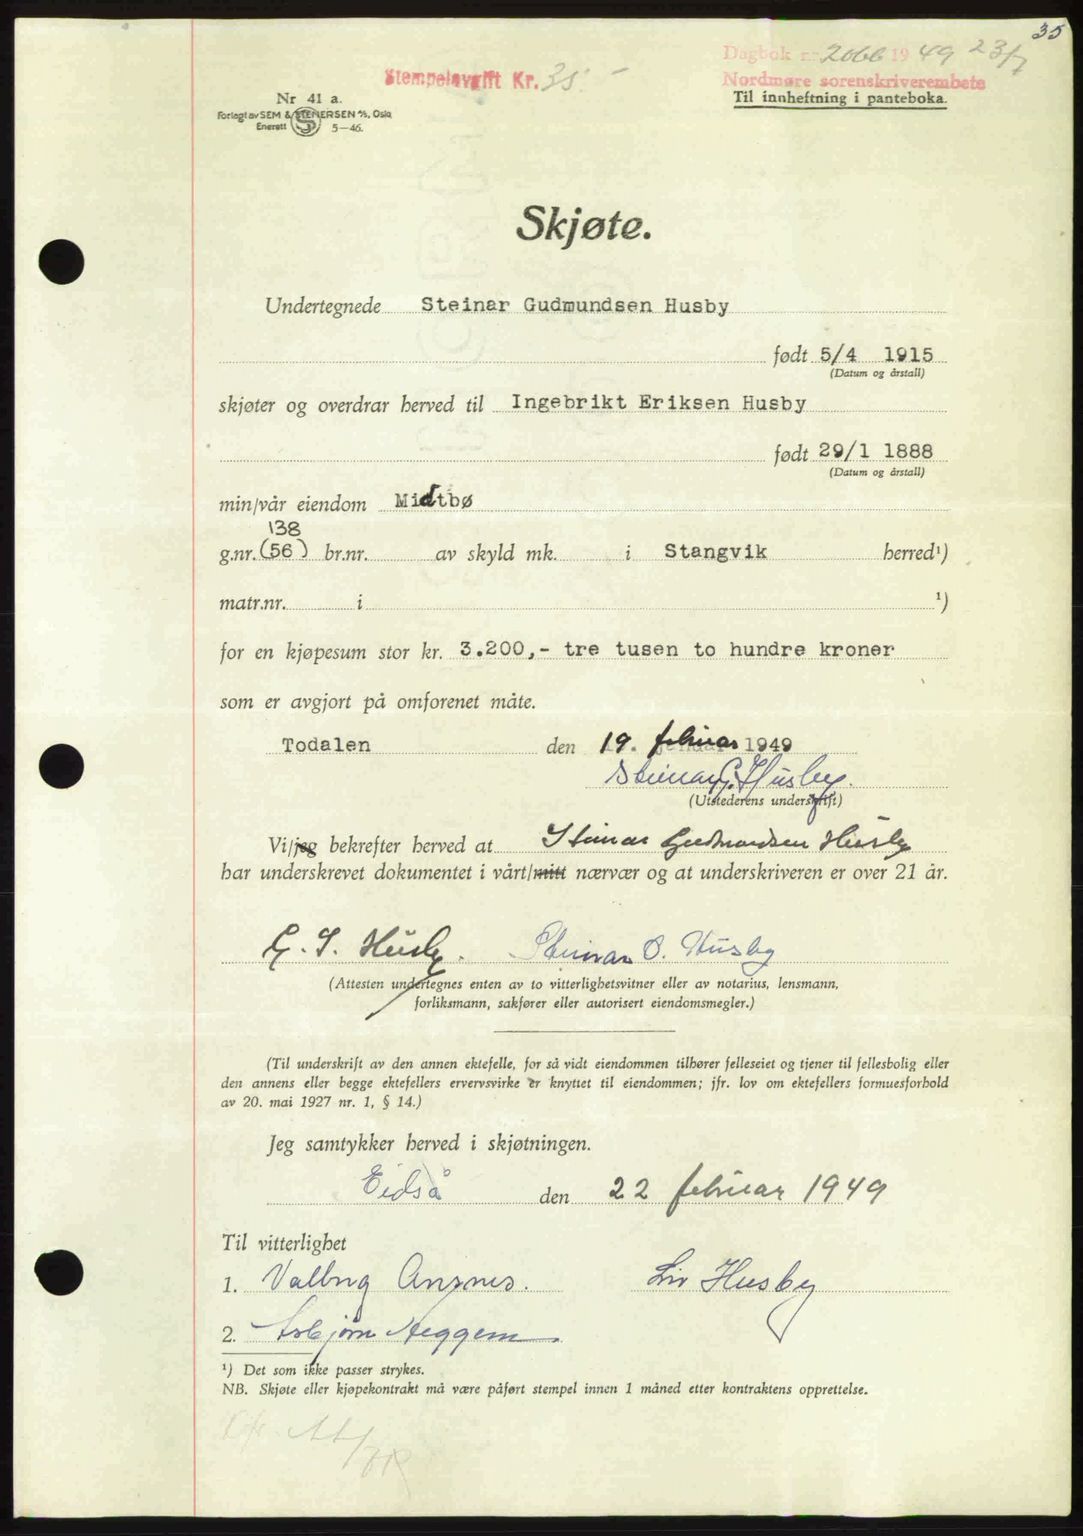 35
Dagbok nr. 2066 1949 23/7
Stempelavgift Kr. 35 -
Nordmøre sorenskriverembete
Til innheftning i panteboka.
Nr 41 a.
Forlagt av SEM & STENERSEN A/S, Oslo
Enerett S 5-46.
Skjøte.
Undertegnede Steinar Gudmundsen Husby
født 5/4 1915
(Datum og årstall)
skjøter og overdrar herved til Ingebrikt Eriksen Husby
født 29/1 1888
(Datum og årstall)
min/vår eiendom Midtbø
138
g.nr. (56) br.nr. av skyld mk. i Stangvik herred¹)
matr.nr. i ¹)
for en kjøpesum stor kr. 3.200,- tre tusen to hundre kroner
som er avgjort på omforenet måte.
Todalen den 19. februar 1949
Steinar G. Husby.
(Utstederens underskrift)
Vi/jeg bekrefter herved at Steinar Gudmundsen Husby
har underskrevet dokumentet i vårt/mitt nærvær og at underskriveren er over 21 år.
G. S. Husby. Steinar O. Husby
(Attesten undertegnes enten av to vitterlighetsvitner eller av notarius, lensmann,
forliksmann, sakfører eller autorisert eiendomsmegler.)
(Til underskrift av den annen ektefelle, for så vidt eiendommen tilhører felleseiet og tjener til fellesbolig eller
den annens eller begge ektefellers ervervsvirke er knyttet til eiendommen; jfr. lov om ektefellers formuesforhold
av 20. mai 1927 nr. 1, § 14.)
Jeg samtykker herved i skjøtningen.
Eidså den 22 februar 1949
Til vitterlighet
1. Valbrg Ansnes. Liv Husby
2. Asbjørn Heggem
¹) Det som ikke passer strykes.
NB. Skjøte eller kjøpekontrakt må være påført stempel innen 1 måned etter kontraktens opprettelse.